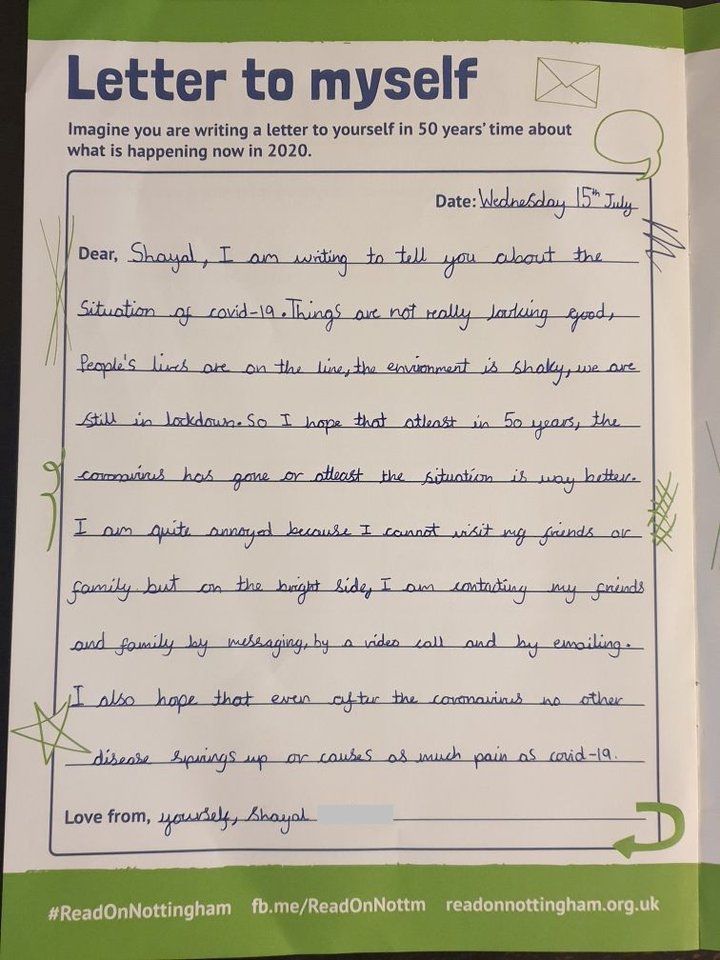 Letter to myself
Imagine you are writing a letter to yourself in 50 years' time about
what is happening now in 2020.
Date: Wednesday 15th July
Dear, Shayal, I am writing to tell you about the
Situation of covid-19. Things are not really looking good,
People's lives are on the line, the environment is shaky, we are
still in lockdown. So I hope that atleast in 50 years, the
coronavirus has gone or atleast the situation is way better.
I am quite annoyed because I cannot visit my friends or
family but on the bright side, I am contacting my friends
and family by messaging, by a video call and by emailing.
I also hope that even after the coronavirus no other
disease springs up or causes as much pain as covid-19.
Love from, yourself, Shayal
#ReadOnNottingham fb.me/ReadOnNottm readonnottingham.org.uk